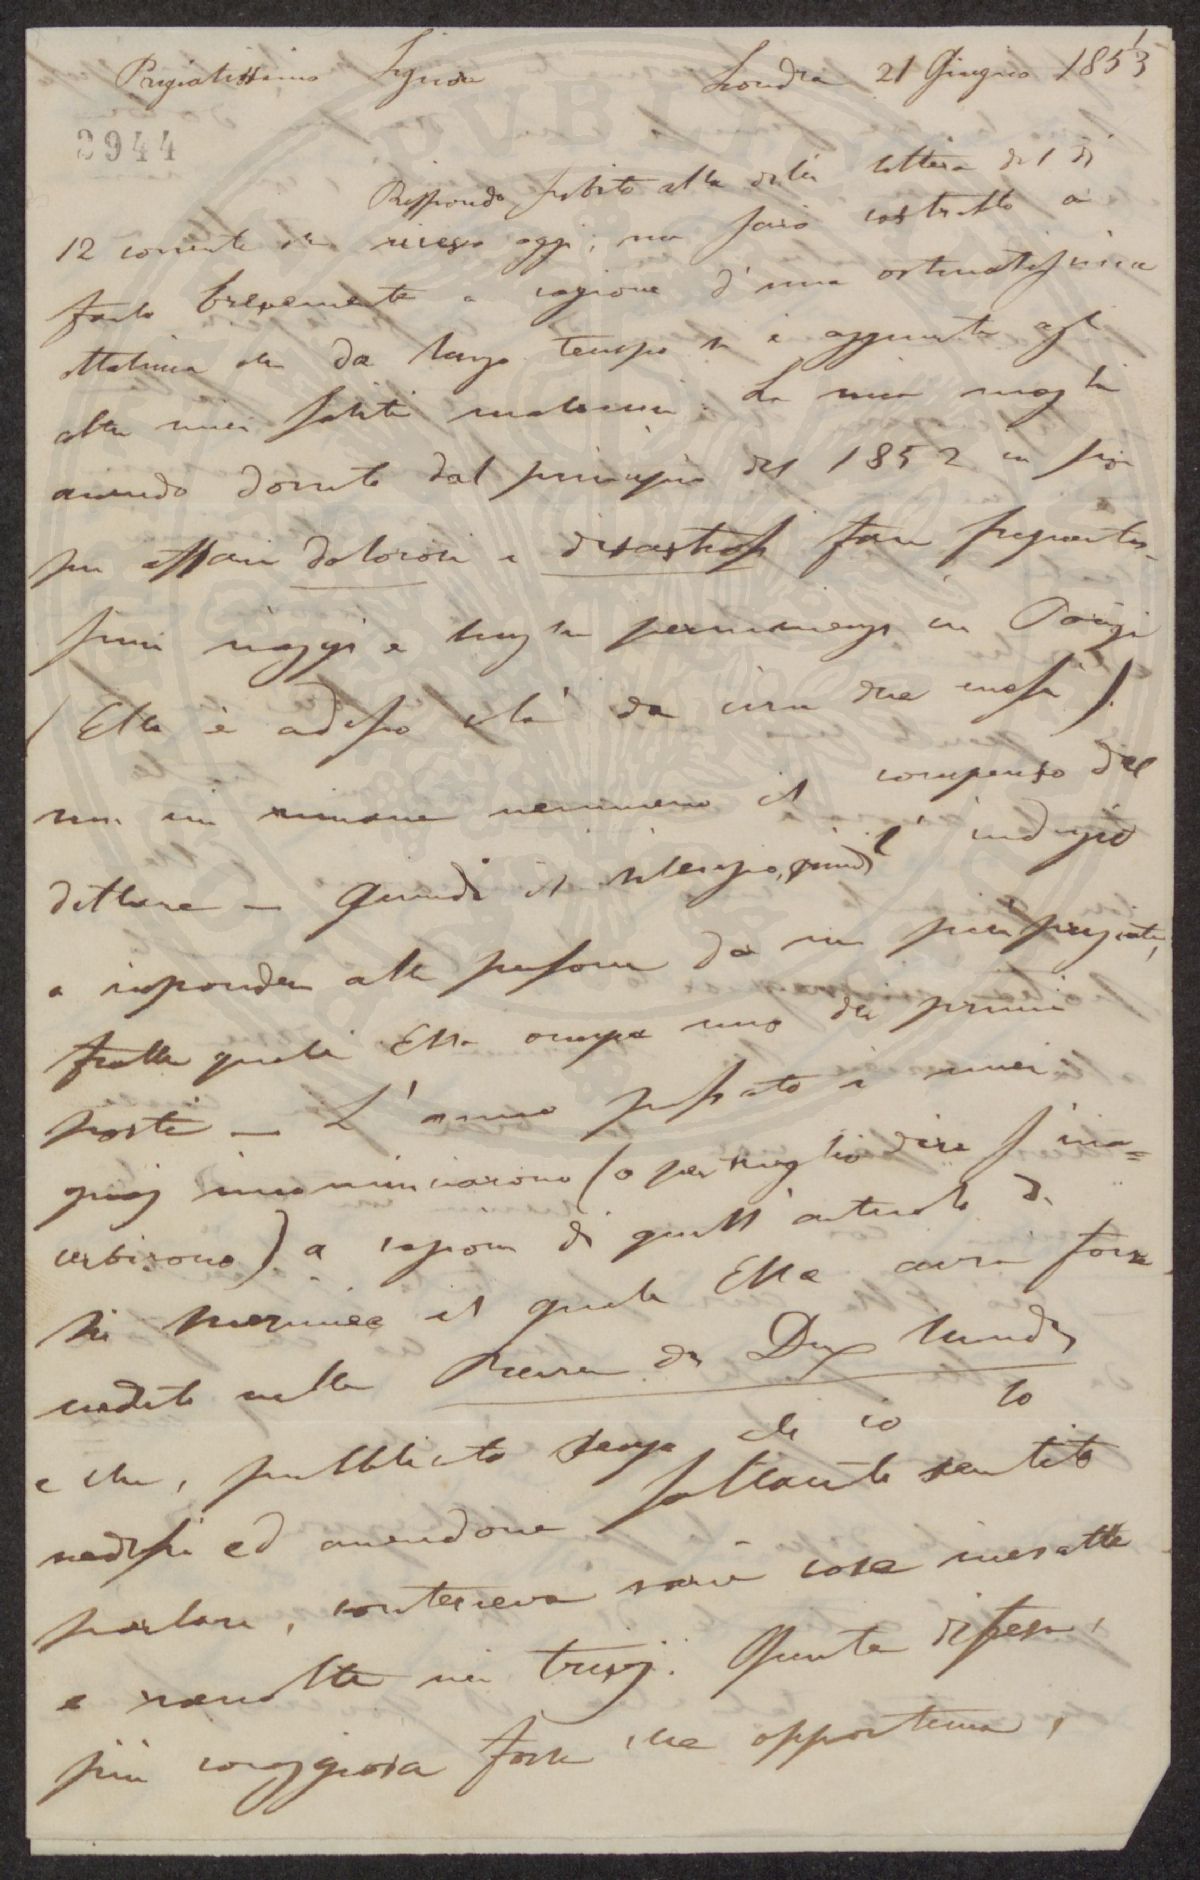 Pregiatissimo Signore Londra 21 Giugno 1853
3944
Rispondo subito alla di lei lettera del dì
12 corrente che ricevo oggi; ma sarò costretto a
farlo brevemente a cagione d'una ostinatissima
ottalmia che da lungo tempo si è aggiunta agli
altri miei soliti malanni. La mia moglie
avendo dovuto dal principio del 1852 in poi
per affari dolorosi e disastrosi fare frequentis-
simi viaggi e lunghe permanenze in Parigi
(Ella è adesso colà da circa due mesi).
non mi rimane nemmeno il compenso del
dettare — Quindi il silenzio, quindi l'indugio
a rispondere alle persone da me più pregiate,
fralle quali Ella occupa uno dei primi
posti — L'anno passato i miei
guaj incominciarono (o per meglio dire s'ina=
cerbirono) a cagione di quell'articolo di
Mérimée il quale Ella avrà forse
veduto nella Revue des Deux Mondes
e che, pubblicato senza che io lo
vedessi ed avendone soltanto sentito
parlare, conteneva varie cose inesatte
e nei Questa difesa,
più coraggiosa forse che opportuna,